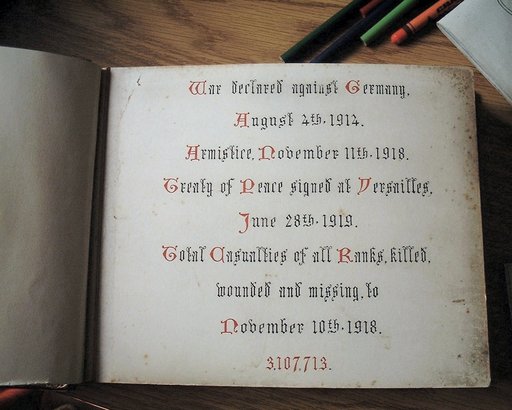 War declared against Germany,
August 4th. 1914.
Armistice, November 11th. 1918.
Treaty of Peace signed at Versailles,
June 28th. 1919.
Total Casualties of all Ranks, killed,
wounded and missing, to
November 10th. 1918.
3,107,713.